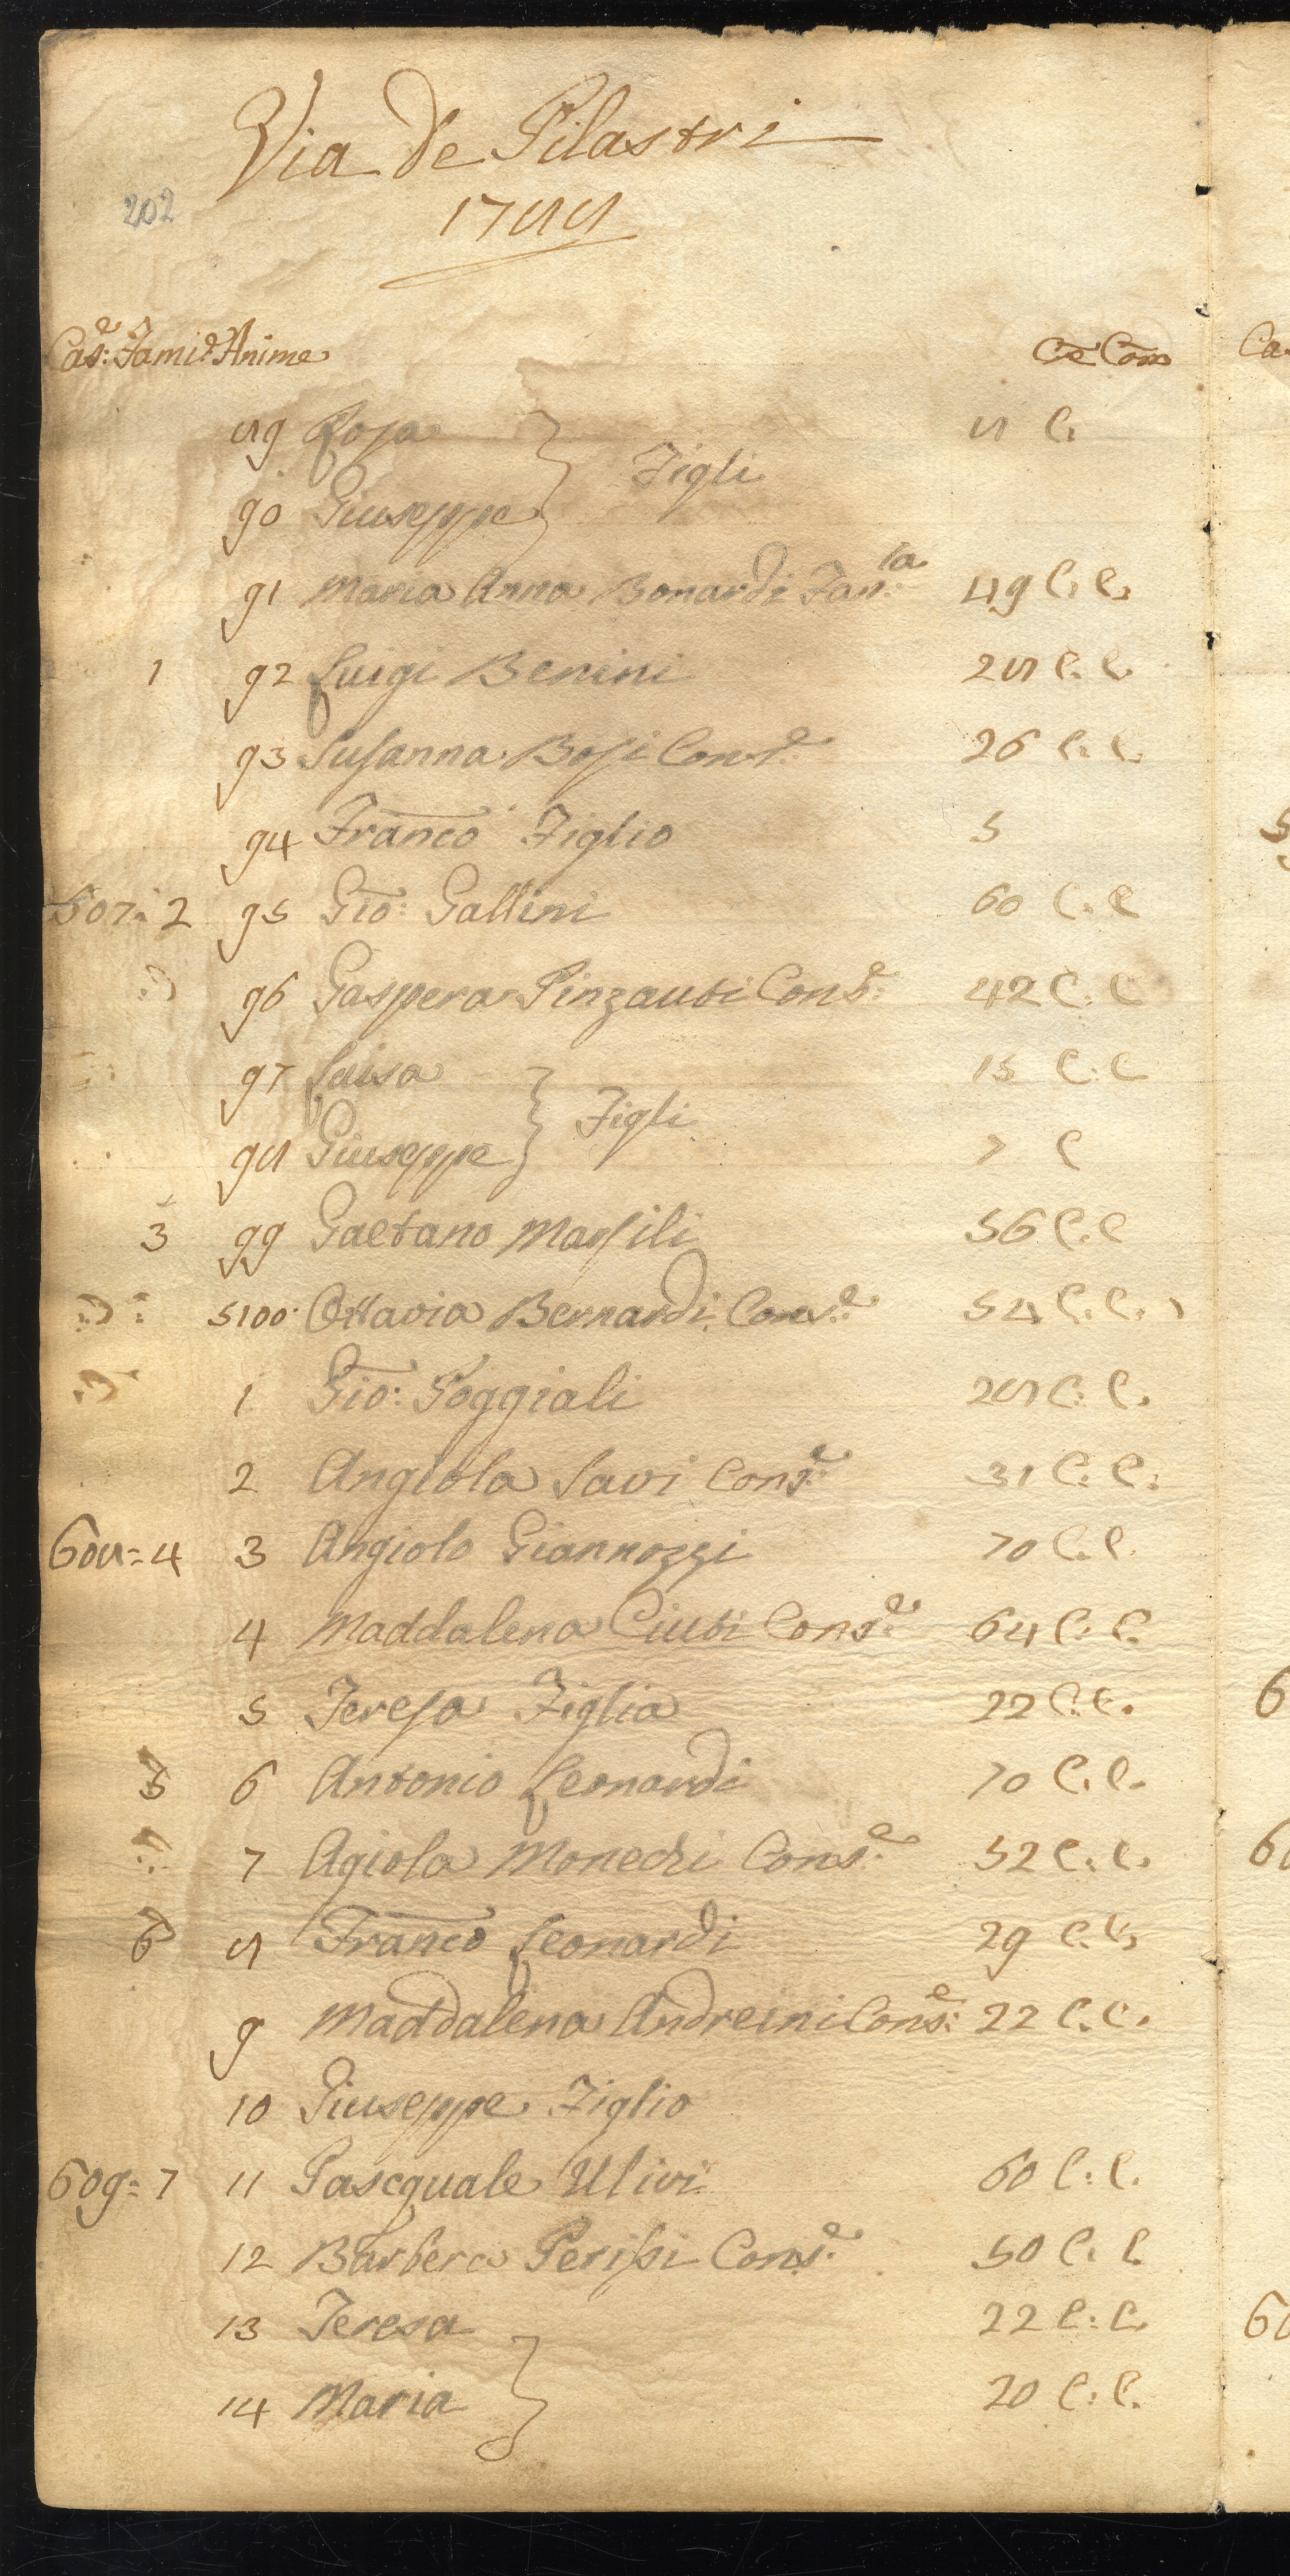 Via de Pilastri
202
1788
Cas:e Fami:e Anime Ce Com
89 Rosa } 8 C.
Figli
90 Giuseppe
91 Maria Anna Bonardi Fan:ta 49 C. C.
1 92 Luigi Benini 28 C. C.
93 Susanna Bosi Cons:e 26 C. C.
94 Franco Figlio 5
607: 2 95 Gio: Gallini 60 C. C
96 Gaspera Pinzauti Cons:e 42 C. C
97 Luisa } 15 C. C
Figli
98 Giuseppe 7 C
3 99 Gaetano Marsili 56 C. C
5100 Ottavia Bernardi Cons:e 54 C. C.
1 Gio: Poggiali 28 C. C.
2 Angiola Savi Cons:e 31 C: C:
608= 4 3 Angiolo Giannozzi 70 C. C.
4 Maddalena Ciuti Cons:e 64 C. C.
5 Teresa Figlia 22 C. C.
5 6 Antonio Leonardi 70 C. C.
7 Agiola Monechi Cons:e 52 C. C.
6 8 Franco Leonardi 29 C. C.
9 Maddalena Andreini Cons:e 22 C. C.
10 Giuseppe Figlio
609= 7 11 Pascquale Ulivi 60 C: C.
12 Barbera Perissi Cons:e 50 C. C
13 Teresa } 22 C: C.
14 Maria 20 C: C.